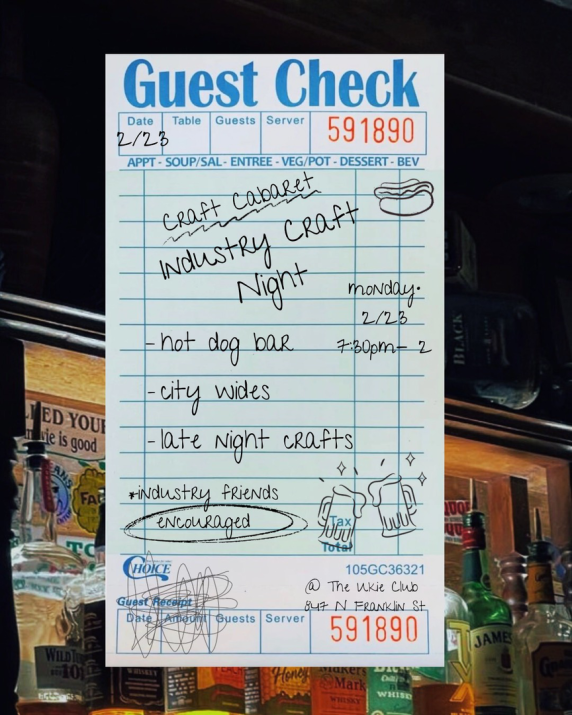 Guest Check
Date Table Guests Server 591890
2/23
APPT - SOUP/SAL - ENTREE - VEG/POT - DESSERT - BEV
Craft Cabaret
Industry Craft
Night
monday.
2/23
7:30pm- 2
-hot dog bar
-city wides
-late night crafts
*industry friends
encouraged
Tax
Total
CHOICE
105GC36321
@ The Ukie Club
847 N Franklin St
Guest Receipt
Date Amount Guests Server 591890
BLACK
JAMES
Honey
Maker's
Mark